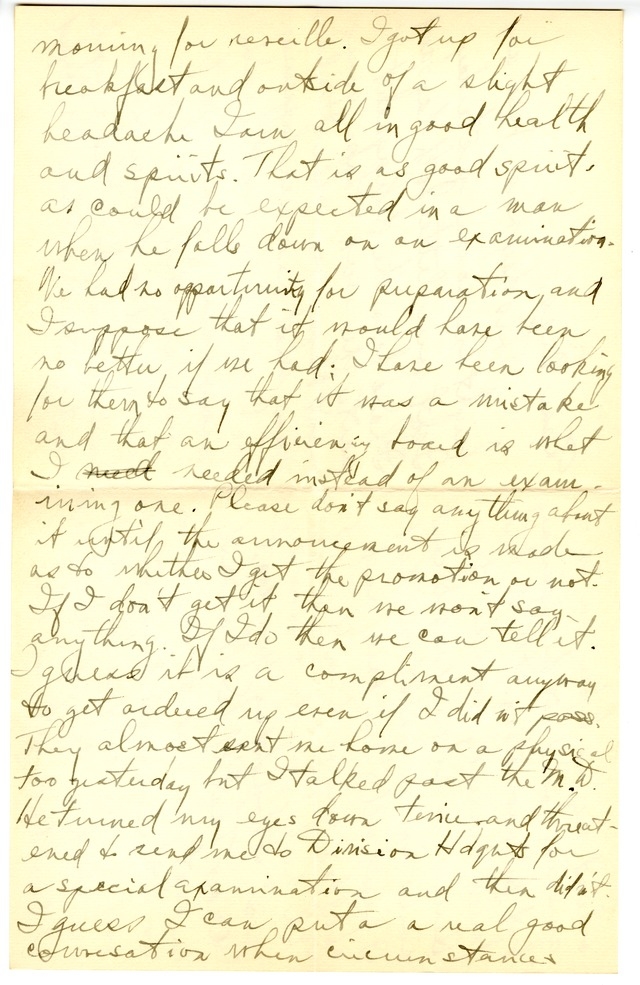 morning for reveille. I got up for
breakfast and outside of a slight
headache I am all in good health
and spirits. That is as good spirits
as could be expected in a man
when he falls down on an examination.
We had no opportunity for preparation, and
I suppose that it would have been
no better if we had; I have been looking
for them to say that it was a mistake
and that an efficiency board is what
I need needed instead of an exam-
ining one. Please don't say anything about
it until the announcement is made
as to whether I get the promotion or not.
If I don't get it then we won't say
anything. If I do then we can tell it.
I guess it is a compliment anyway
to get ordered up even if I did not pass.
They almost sent me home on a physical
too yesterday but I talked past the M.D.
He turned my eyes down twice and threat-
ened to send me to Division Hdqrts for
a special examination and then didn't.
I guess I can put a a real good
conversation when circumstances